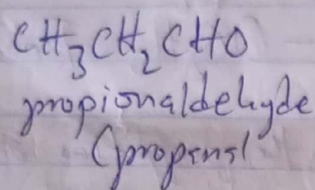 CH₃CH₂CHO
propionaldehyde
(propenal